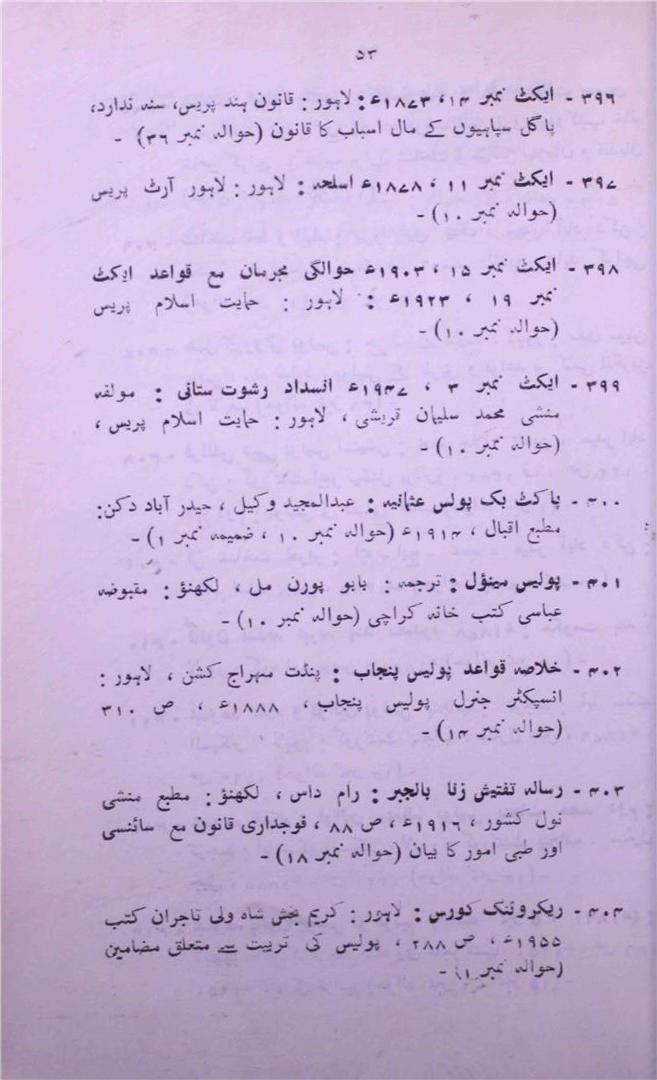 ۵۳
۳۹۶ - ایکٹ نمبر ۱۴، ۱۸۷۳ء: لاہور: قانون ہند پریس، سنہ ندارد،
پاگل سپاہیوں کے مال اسباب کا قانون (حوالہ نمبر ۳۶) -
۳۹۷ - ایکٹ نمبر ۱۱، ۱۸۷۸ء اسلحہ: لاہور: لاہور آرٹ پریس
(حوالہ نمبر ۱۰)-
۳۹۸ - ایکٹ نمبر ۱۵، ۱۹۰۳ء حوالگی مجرمان مع قواعد ایکٹ
نمبر ۱۹، ۱۹۲۳ء: لاہور: حمایت اسلام پریس
(حوالہ نمبر ۱۰)-
۳۹۹ - ایکٹ نمبر ۳، ۱۹۴۷ء انسداد رشوت ستانی: مولفہ
منشی محمد سلیمان قریشی، لاہور: حمایت اسلام پریس،
(حوالہ نمبر ۱۰)-
۴۰۰ - پاکٹ بک پولس عثمانیہ: عبدالمجید وکیل، حیدر آباد دکن:
مطبع اقبال، ۱۹۱۴ء (حوالہ نمبر ۱۰، ضمیمہ نمبر ۱) -
۴۰۱ - پولیس مینؤل: ترجمہ: بابو پورن مل، لکھنؤ: مقبوضہ
عباسی کتب خانہ کراچی (حوالہ نمبر ۱۰)-
۴۰۲ - خلاصہ قواعد پولیس پنجاب: پنڈت مہراج کشن، لاہور:
انسپکٹر جنرل پولیس پنجاب، ۱۸۸۸ء، ص ۳۱۰
(حوالہ نمبر ۱۴)-
۴۰۳ - رسالہ تفتیش زنا بالجبر: رام داس، لکھنؤ: مطبع منشی
نول کشور، ۱۹۱۶ء، ص ۸۸، فوجداری قانون مع سائنسی
اور طبی امور کا بیان (حوالہ نمبر ۱۸) -
۴۰۴ - ریکروٹنگ کورس: لاہور: کریم بخش شاہ ولی تاجران کتب
۱۹۵۵ء، ص ۲۸۸، پولیس کی تربیت سے متعلق مضامین
(حوالہ نمبر ۱) -